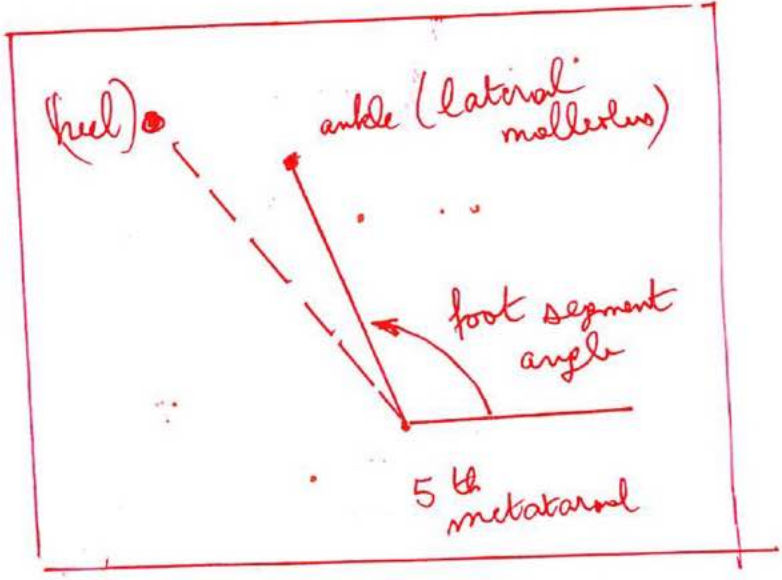 (heel)
ankle (lateral
malleolus)
foot segment
angle
5th
metatarsal